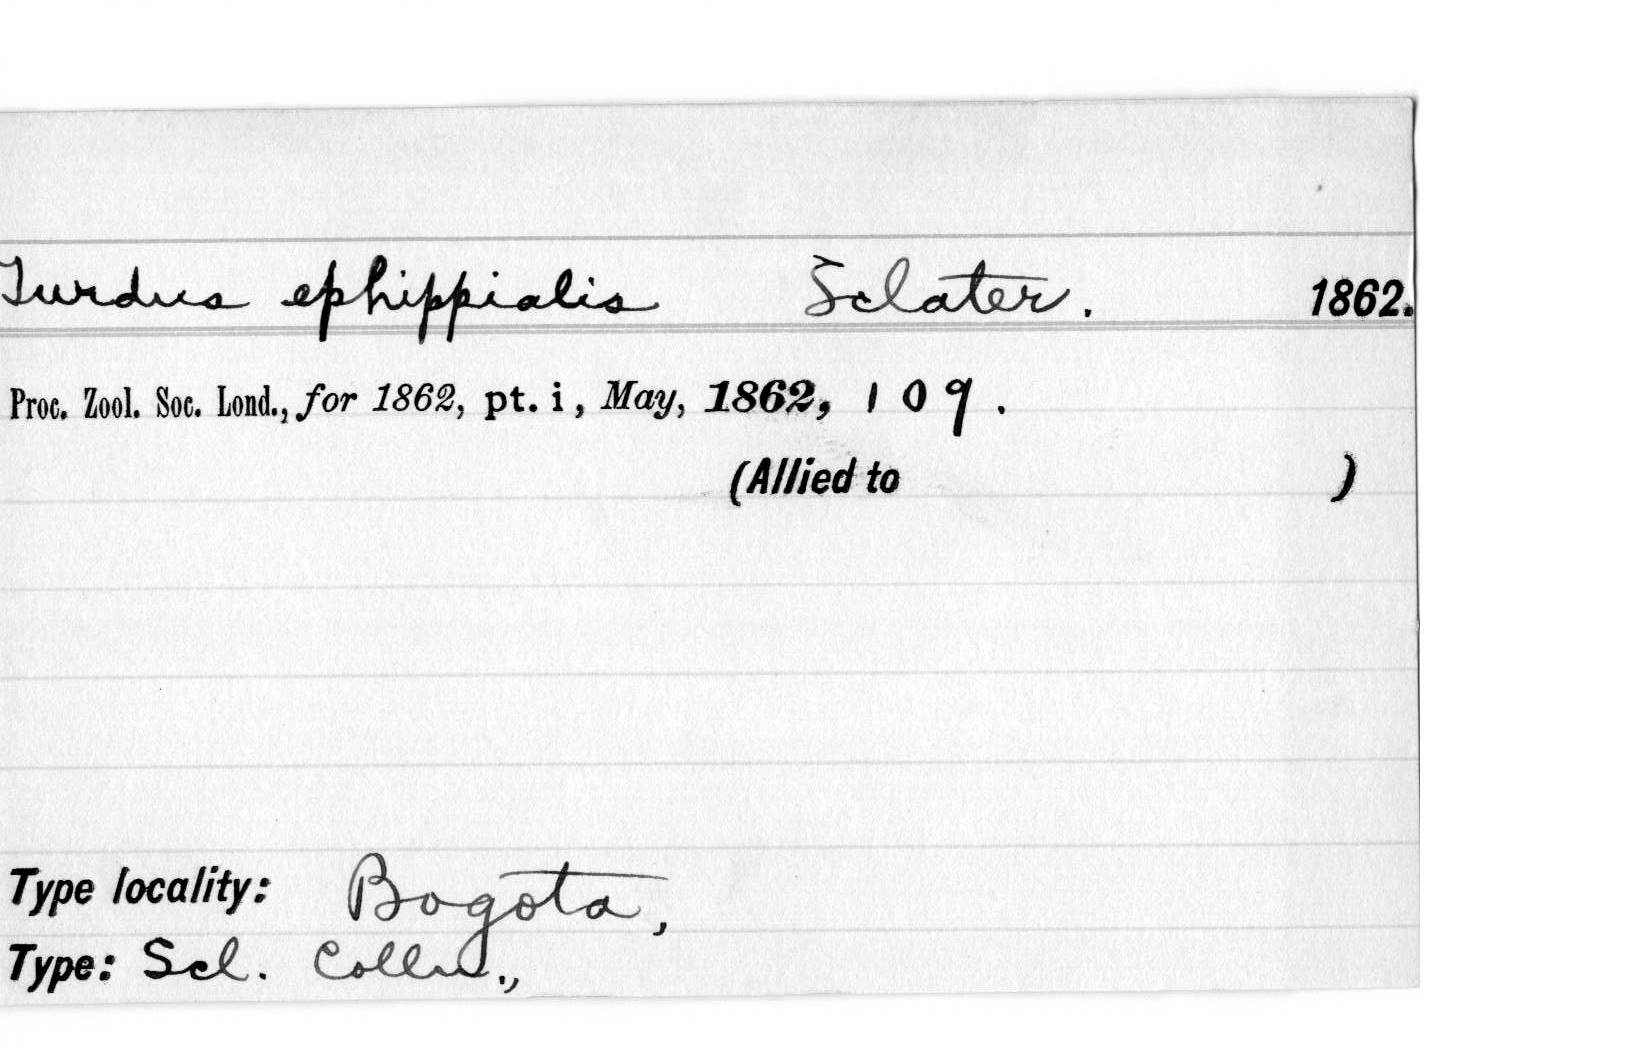 Turdus ephippialis Sclater. 1862.
Proc. Zool. Soc. Lond., for 1862, pt. i, May, 1862, 109.
(Allied to )
Type locality: Bogota,
Type: Scl. Colln.,